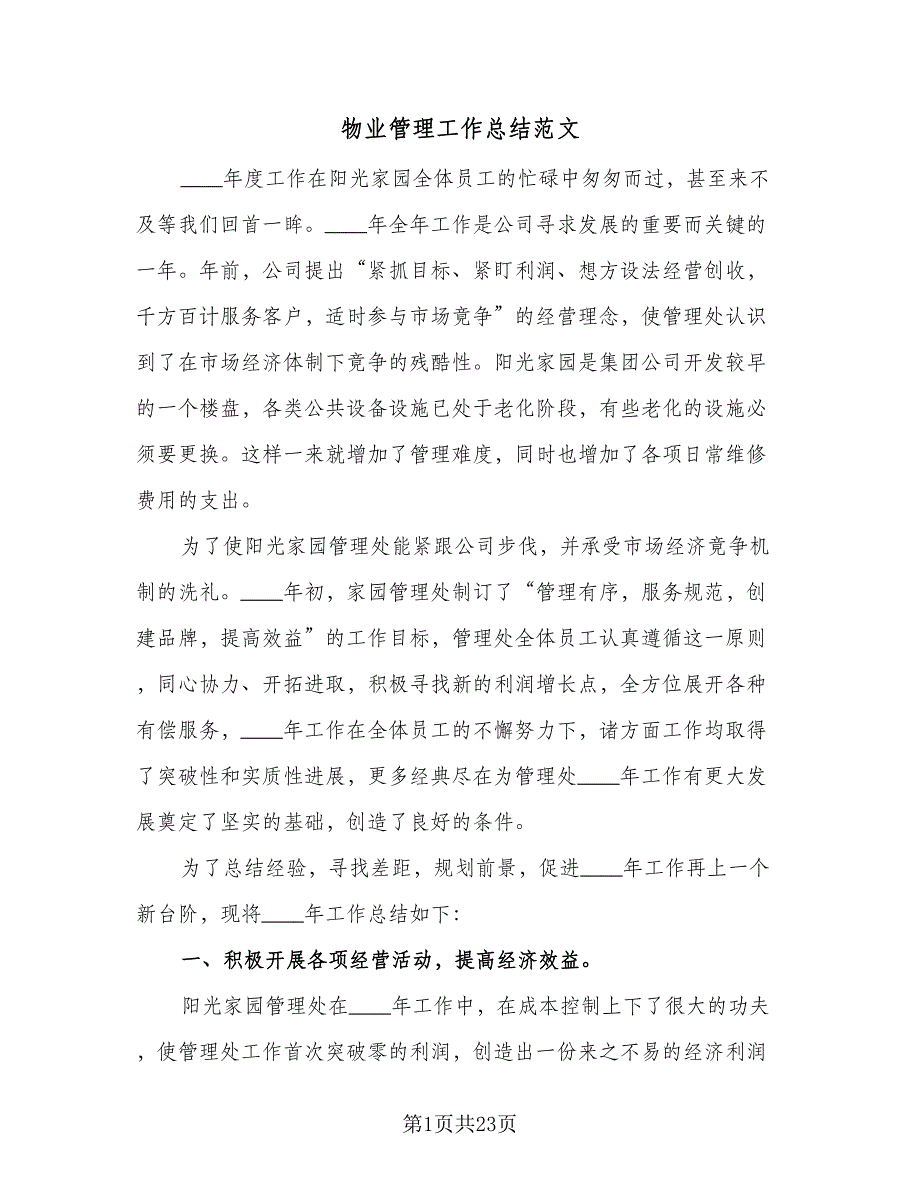 物业管理工作总结范文
____年度工作在阳光家园全体员工的忙碌中匆匆而过，甚至来不
及等我们回首一眸。____年全年工作是公司寻求发展的重要而关键的
一年。年前，公司提出“紧抓目标、紧盯利润、想方设法经营创收，
千方百计服务客户，适时参与市场竟争”的经营理念，使管理处认识
到了在市场经济体制下竟争的残酷性。阳光家园是集团公司开发较早
的一个楼盘，各类公共设备设施已处于老化阶段，有些老化的设施必
须要更换。这样一来就增加了管理难度，同时也增加了各项日常维修
费用的支出。
为了使阳光家园管理处能紧跟公司步伐，并承受市场经济竟争机
制的洗礼。____年初，家园管理处制订了“管理有序，服务规范，创
建品牌，提高效益”的工作目标，管理处全体员工认真遵循这一原则
，同心协力、开拓进取，积极寻找新的利润增长点，全方位展开各种
有偿服务，____年工作在全体员工的不懈努力下，诸方面工作均取得
了突破性和实质性进展，更多经典尽在为管理处____年工作有更大发
展奠定了坚实的基础，创造了良好的条件。
为了总结经验，寻找差距，规划前景，促进____年工作再上一个
新台阶，现将____年工作总结如下：
一、积极开展各项经营活动，提高经济效益。
阳光家园管理处在____年工作中，在成本控制上下了很大的功夫
，使管理处工作首次突破零的利润，创造出一份来之不易的经济利润
第1页共23页